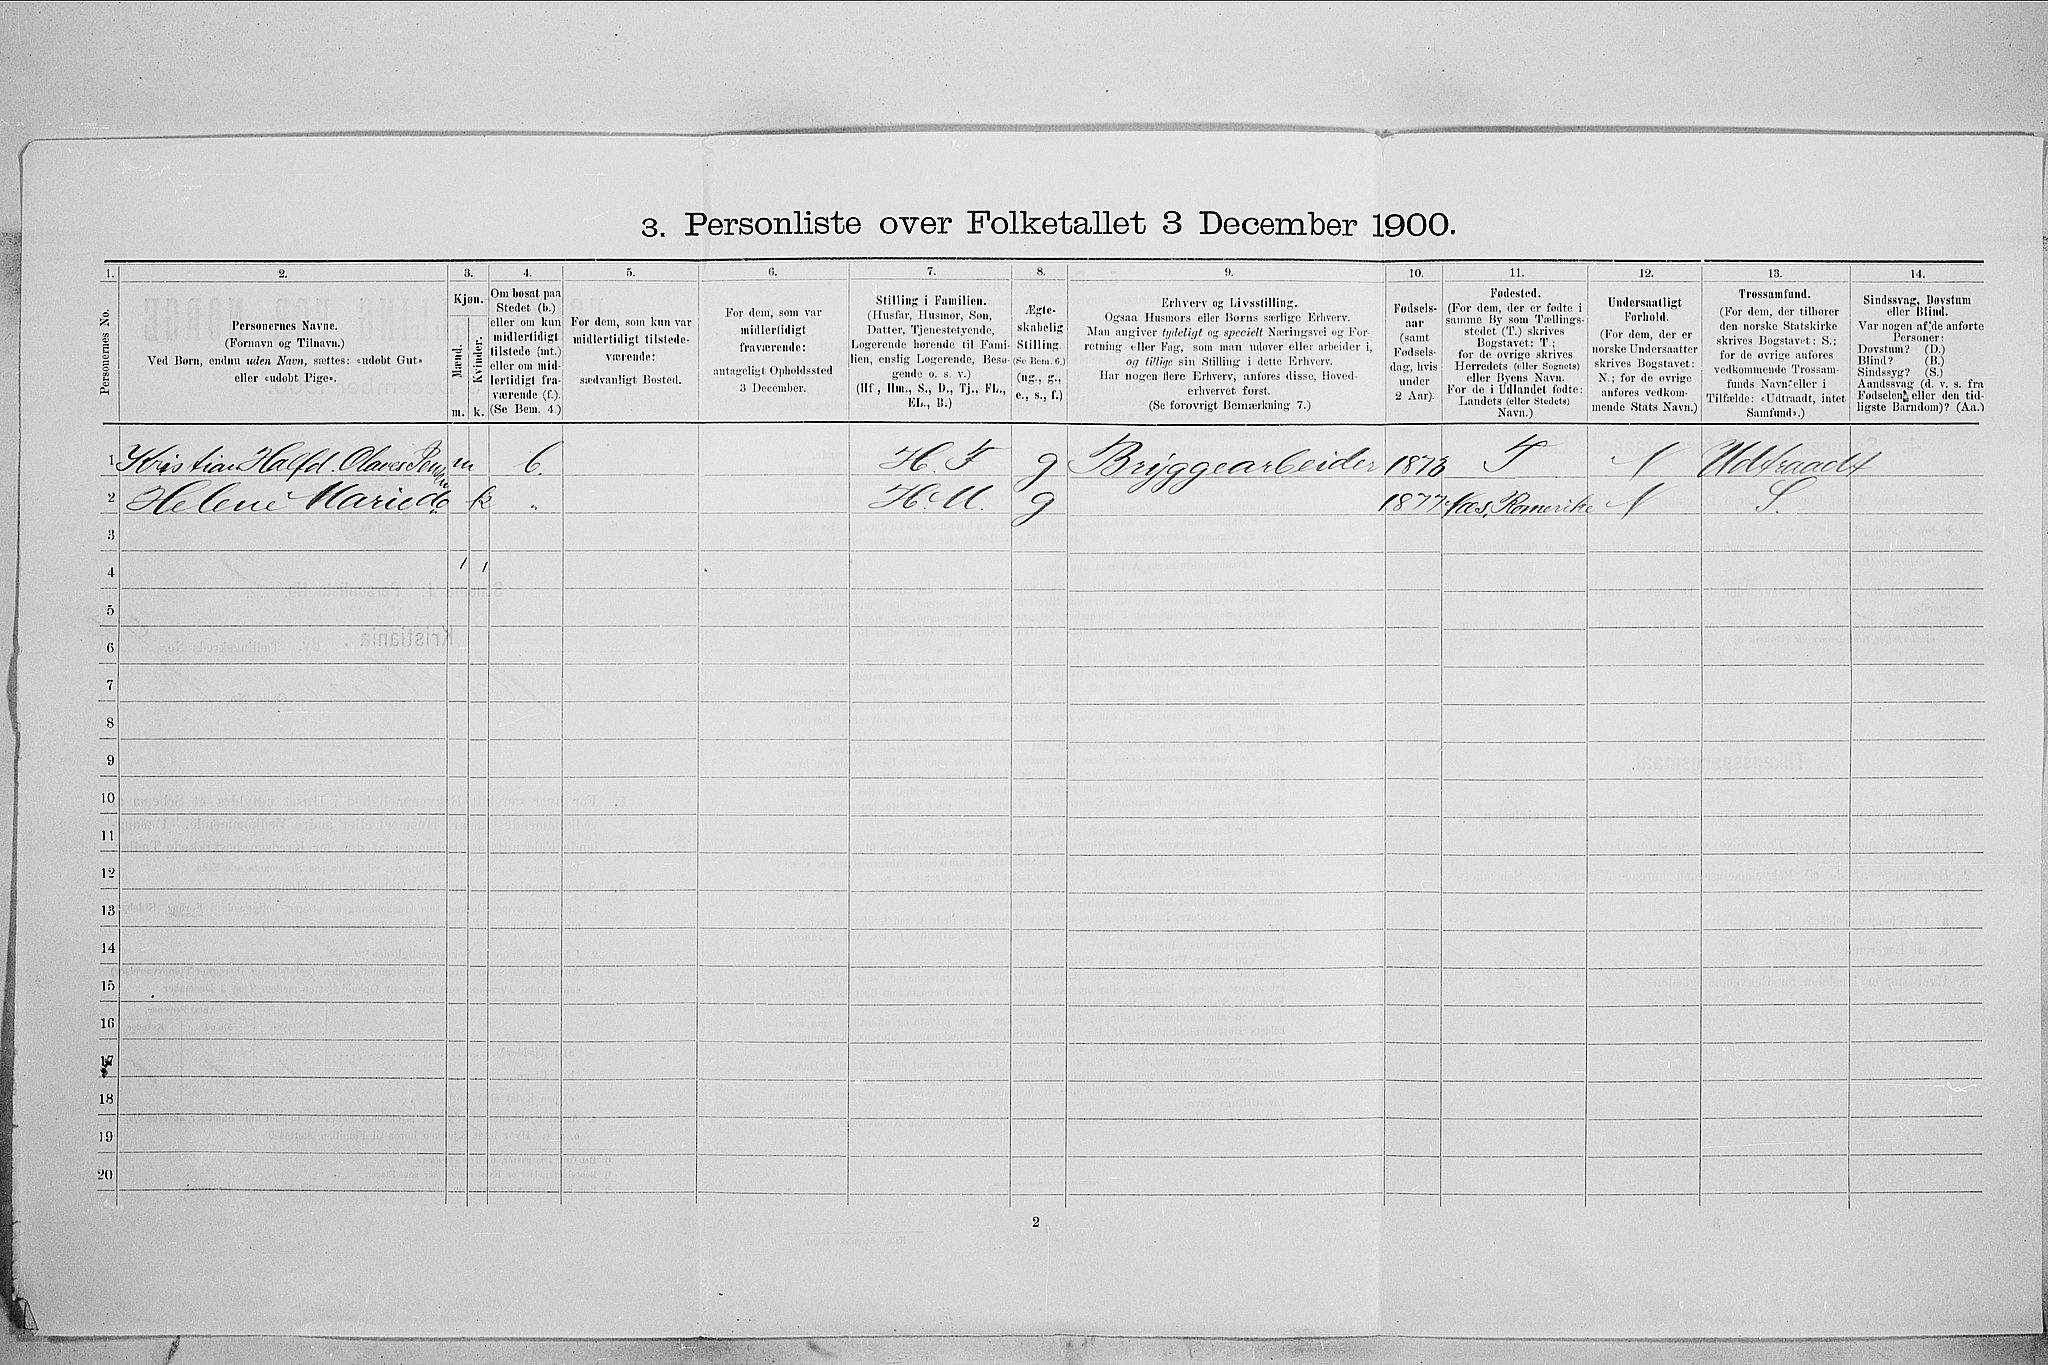 3. Personliste over Folketallet 3 December 1900.
1. 2. 3. 4. 5. 6. 7. 8. 9. 10. 11. 12. 13. 14.
Personernes No.
Personernes Navne.
(Fornavn og Tilnavn.)
Ved Børn, endnu uden Navn, sættes: «udøbt Gut»
eller «udøbt Pige».
Kjøn.
Mænd.
Kvinder.
m. k.
Om bosat paa
Stedet (b.)
eller om kun
midlertidigt
tilstede (mt.)
eller om mid-
lertidigt fra-
værende (f.)
(Se Bem. 4.)
For dem, som kun var
midlertidigt tilstede-
værende:
sædvanligt Bosted.
For dem, som var
midlertidigt
fraværende:
antageligt Opholdssted
3 December.
Stilling i Familien.
(Husfar, Husmor, Søn,
Datter, Tjenestetyende,
Logerende hørende til Fami-
lien, enslig Logerende, Besø-
gende o. s. v.)
(Hf., Hm., S., D., Tj., FL.,
EL., B.)
Ægte-
skabelig
Stilling.
(Se Bem. 6.)
(ug., g.,
e., s., f.)
Erhverv og Livsstilling.
Ogsaa Husmors eller Børns særlige Erhverv.
Man angiver tydeligt og specielt Næringsvei og For-
retning eller Fag, som man udøver eller arbeider i,
og tillige sin Stilling i dette Erhverv.
Har nogen flere Erhverv, anføres disse, Hoved-
erhvervet først.
(Se forøvrigt Bemærkning 7.)
Fødsels-
aar
(samt
Fødsels-
dag, hvis
under
2 Aar).
Fødested.
(For dem, der er fødte i
samme By som Tællings-
stedet (T.) skrives
Bogstavet: T;
for de øvrige skrives
Herredets (eller Sognets)
eller Byens Navn.
For de i Udlandet fødte:
Landets (eller Stedets)
Navn.)
Undersaatligt
Forhold.
(For dem, der er
norske Undersaatter
skrives Bogstavet:
N.; for de øvrige
anføres vedkom-
mende Stats Navn.)
Trossamfund.
(For dem, der tilhører
den norske Statskirke
skrives Bogstavet: S.;
for de øvrige anføres
vedkommende Trossam-
funds Navn, eller i
Tilfælde: «Udtraadt, intet
Samfund».)
Sindssvag, Døvstum
eller Blind.
Var nogen af de anførte
Personer:
Døvstum? (D.)
Blind? (B.)
Sindssyg? (S.)
Aandssvag (d. v. s. fra
Fødselen eller den tid-
ligste Barndom)? (Aa.)
1 Kristian Halfd. Olaves m b. H. F g Bryggearbeider 1873 T N Udtraadt
2 Helene Marie do k " H. M. g 1877 Næs, Romerike N S.
3
4 1 1
5
6
7
8
9
10
11
12
13
14
15
16
17
18
19
20
2